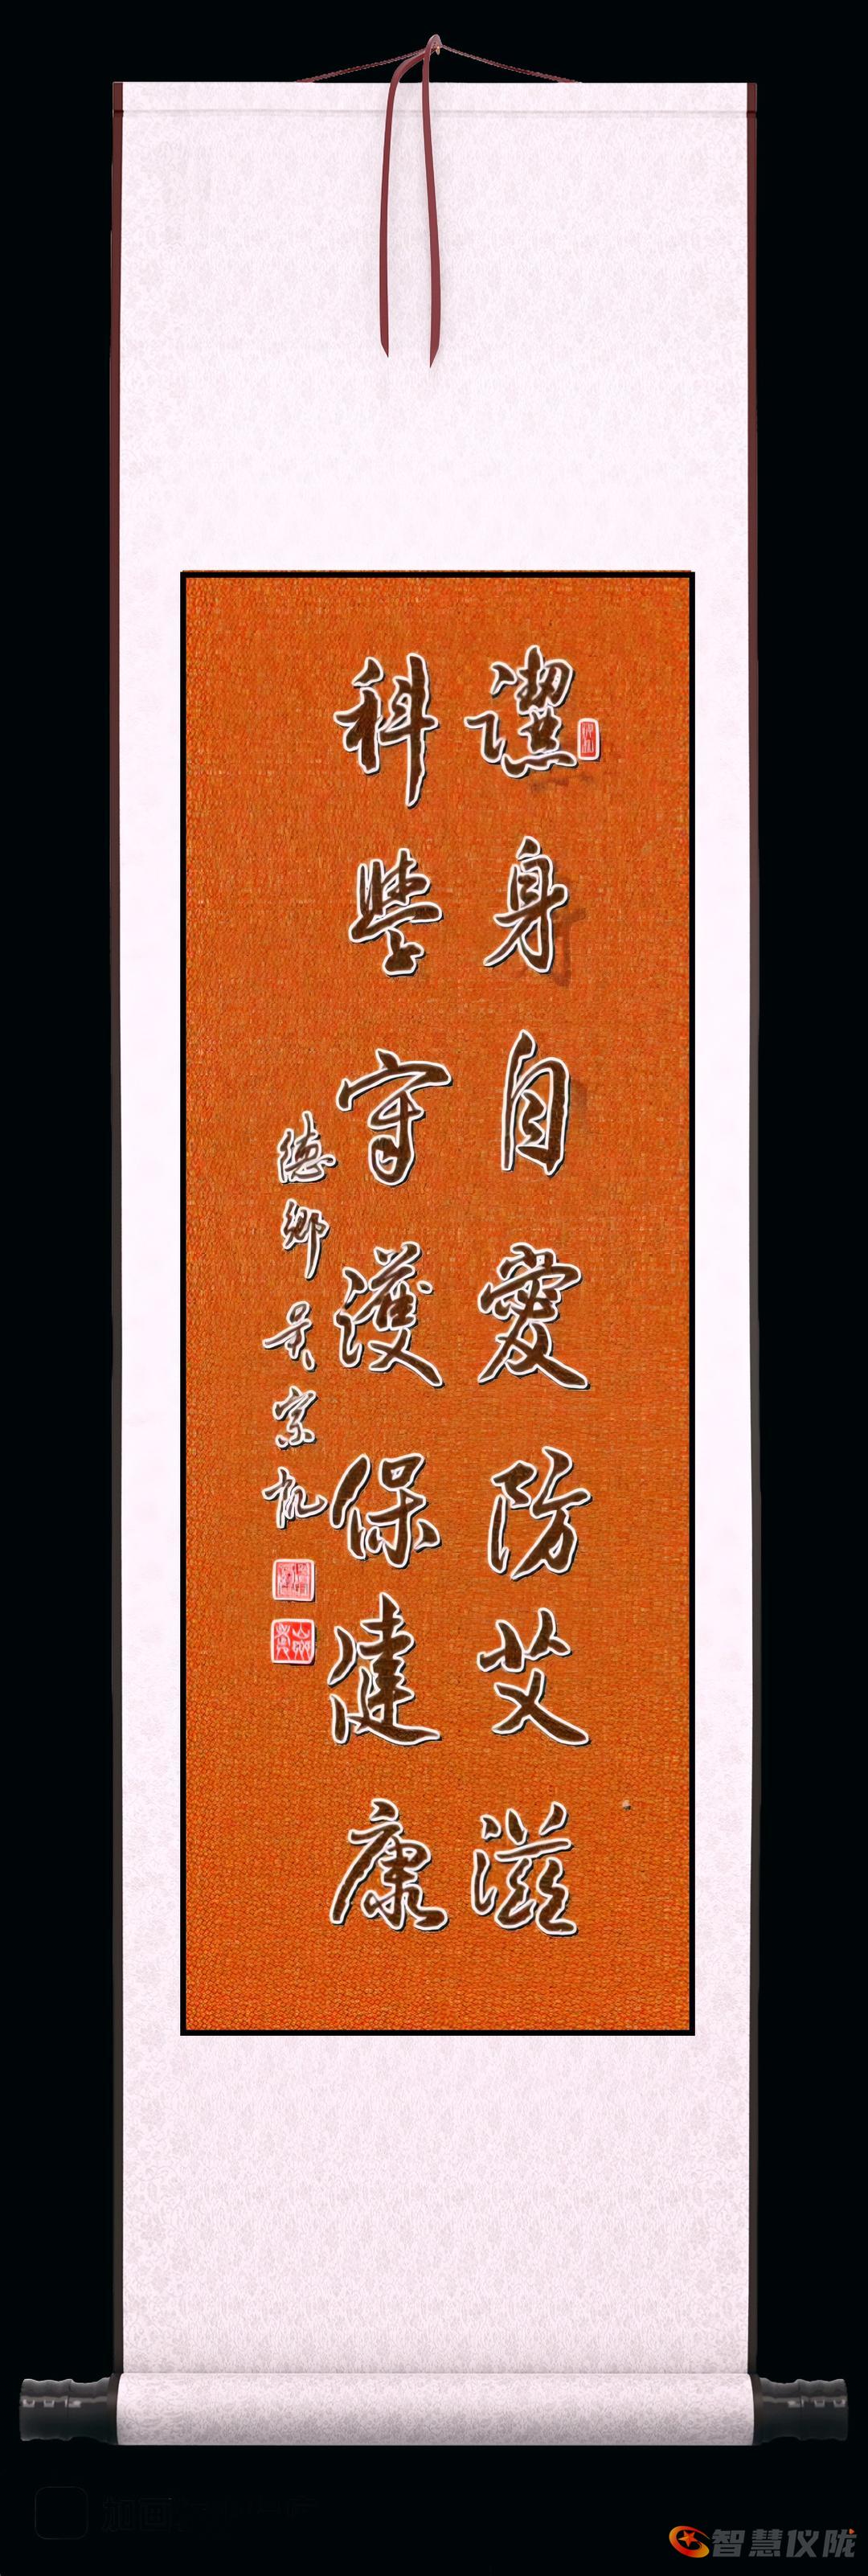 潔身自愛防艾滋
科學守護保健康
德鄉吴宗凯
智慧仪陇